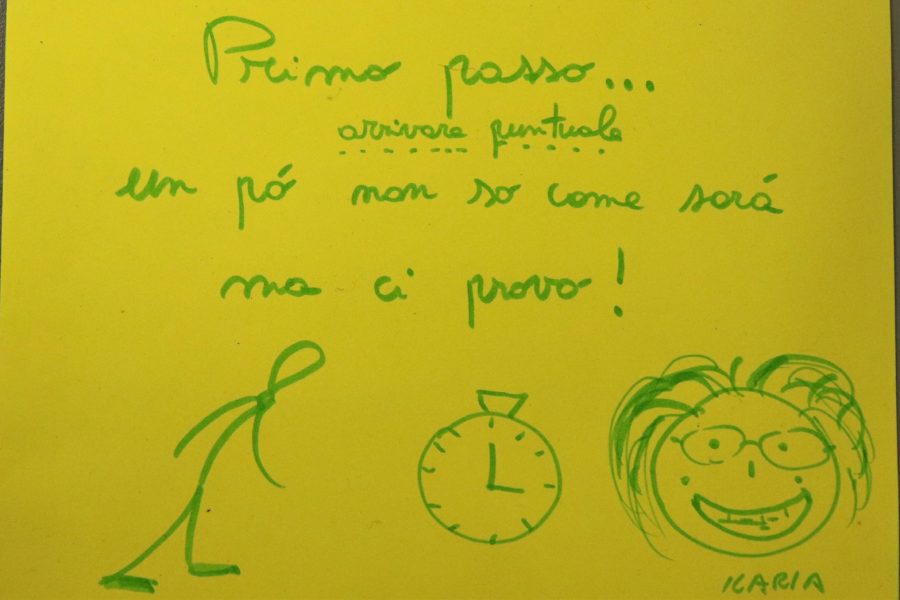 Primo passo...
arrivare puntuale
un pó non so come sará
ma ci provo!
ILARIA